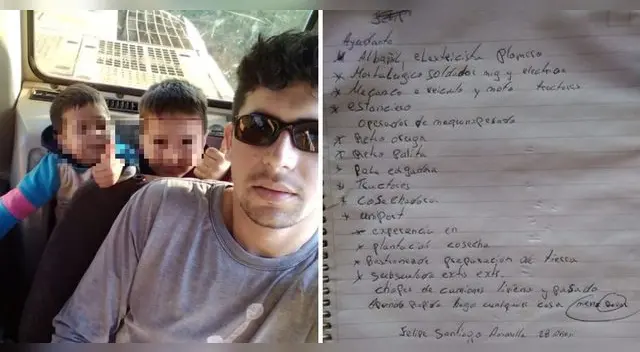 Ayudante
* Albañil, electricista plomiso
* Metalurgico soldador mig y electrica
* Mecanico e veiculo y moto tractores
* estanciero
operador de maquina pesada
* Retro oruga
* Retro Palita
* Pala cargadora
* Tractores
* Cosechadora
* uniport
* experiencia en
* plantacion cosecha
* preparacion de tierra
* Subsuladora exts exts.
chofer de camiones liviano y pesado
hago cualquier cosa menos
Felipe Santiago 28 Años